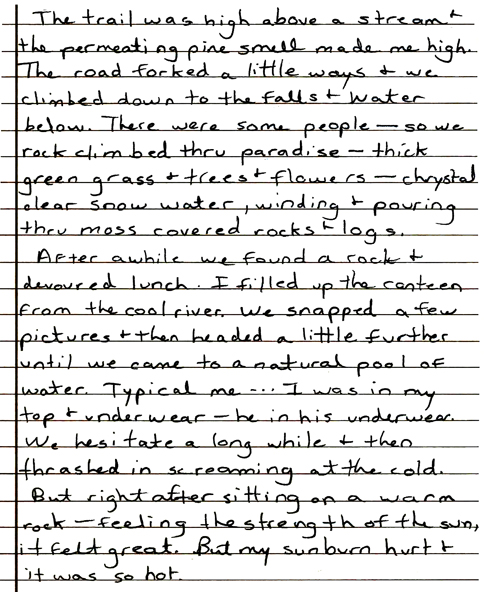 The trail was high above a stream +
the permeating pine smell made me high.
The road forked a little ways + we
climbed down to the falls + water
below. There were some people — so we
rock climbed thru paradise — thick
green grass + trees + flowers — chrystal
clear snow water, winding + pouring
thru moss covered rocks + logs.
After awhile we found a rock +
devoured lunch. I filled up the canteen
from the cool river. We snapped a few
pictures + then headed a little further
until we came to a natural pool of
water. Typical me --- I was in my
top + underwear — he in his underwear.
We hesitate a long while + then
thrashed in screaming at the cold.
But right after sitting on a warm
rock — feeling the strength of the sun,
it felt great. But my sunburn hurt +
it was so hot.